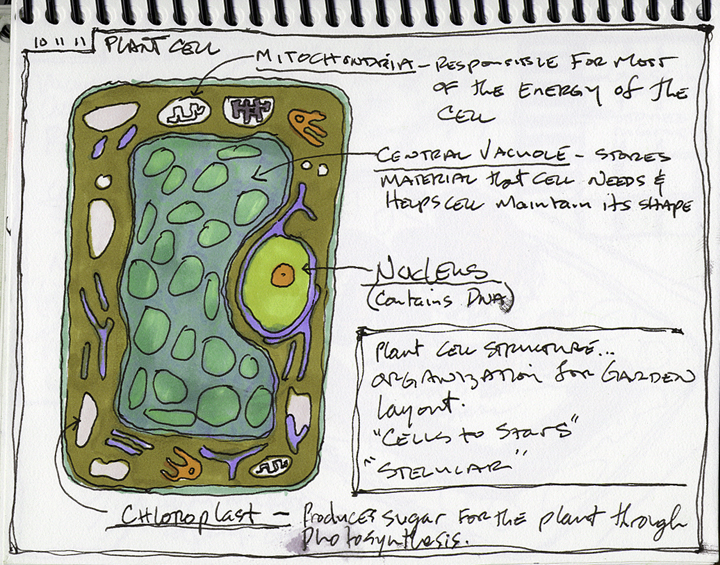 10 11 11
PLANT CELL
MITOCHONDRIA - RESPONSIBLE FOR MOST
OF the ENERGY of the
CELL
CENTRAL VACUOLE - STORES
MATERIAL that CELL NEEDS &
HELPS CELL Maintain its SHAPE
NUCLEUS
(Contains DNA)
Plant CELL STRUCTURE...
ORGANIZATION for GARDEN
Layout.
"CELLS to STARS"
"STELLULAR"
CHLOROPLAST - Produces sugar FOR the plant through
Photosynthesis.